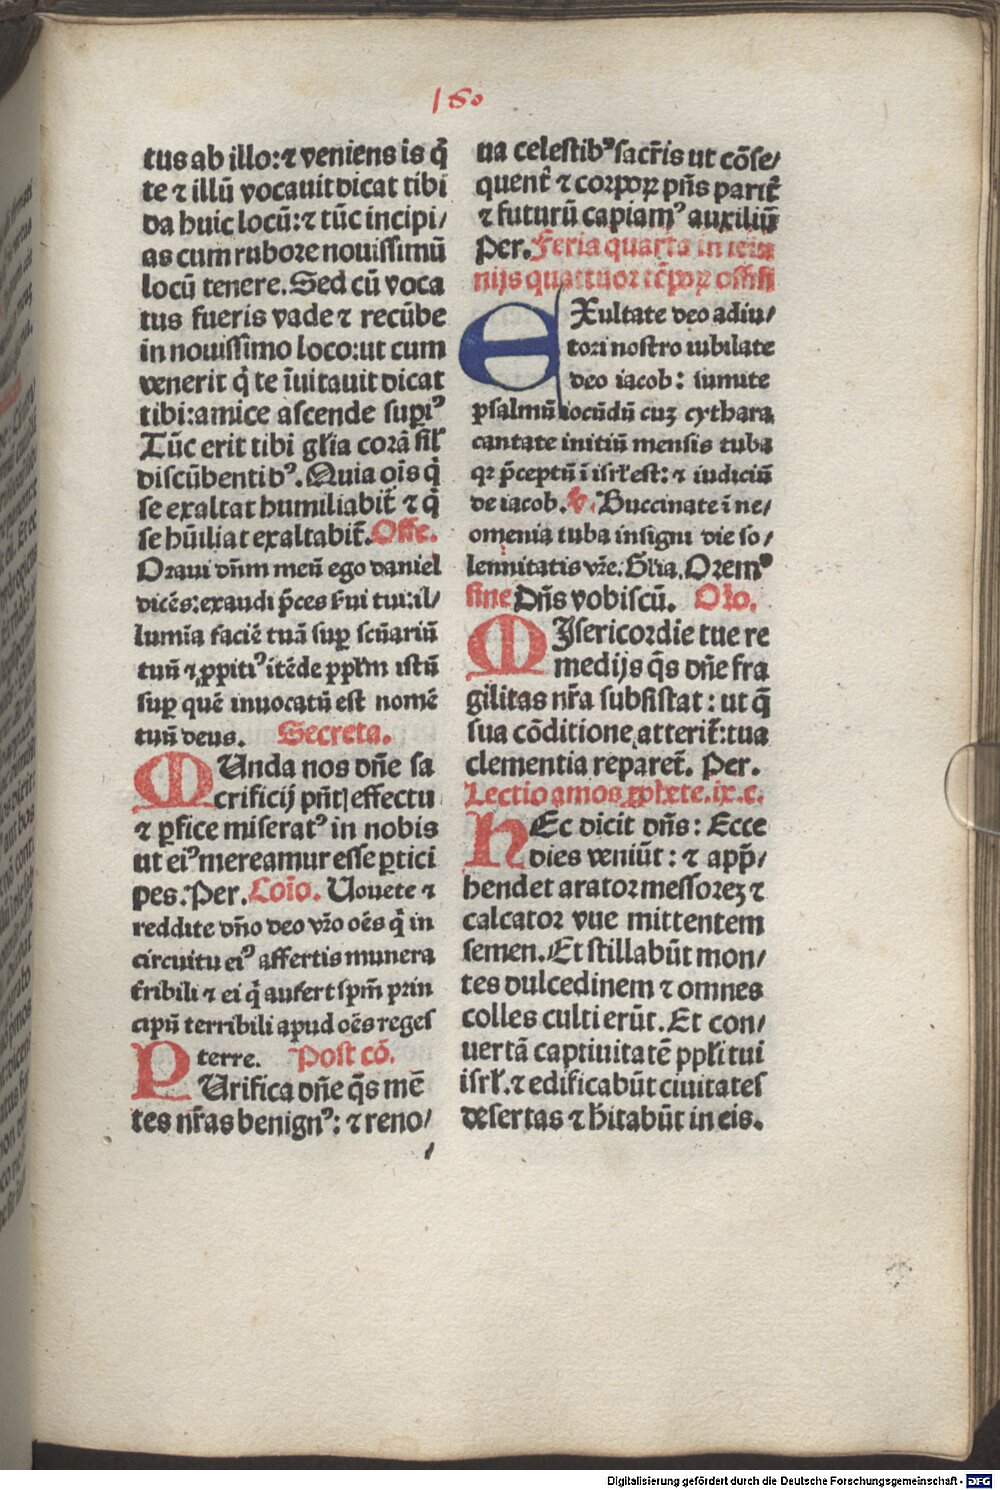 180
tus ab illo: ⁊ veniens is q̄
te ⁊ illū vocauit dicat tibi
da huic locū: ⁊ tūc incipi/
as cum rubore nouissimū
locū tenere. Sed cū voca
tus fueris vade ⁊ recūbe
in nouissimo loco: ut cum
venerit q̄ te īuitauit dicat
tibi: amice ascende supi᾽
Tūc erit tibi gl̄ia corā sil̄
discūbentib᾽. Quia oīs q̄
se exaltat humiliabit̄ ⁊ q̄
se hūiliat exaltabit̄. Offe.
Oraui dn̄m meū ego daniel
dicēs: exaudi p̄ces ẜui tui: il/
lumīa faciē tuā sup scn̄ariū
tuū ⁊ ꝓpiti᾽ itēde ꝓpl̄m istū
sup quē inuocatū est nomē
tuū deus. Secreta.
MUnda nos dn̄e sa
crificij pn̄tꝭ effectu
⁊ ꝑfice miserat᾽ in nobis
ut ei᾽ mereamur esse ꝑtici
pes. Per. Cōio. Uouete ⁊
reddite dn̄o deo vr̄o oēs q̄ in
circuitu ei᾽ affertis munera
t̄ribili ⁊ ei q̄ aufert sp̄m prin
cipū terribili apud oēs reges
terre. Post cō.
PUrifica dn̄e q̄s mē
tes nr̄as benign᾽: ⁊ reno/
ua celestib᾽ sacr̄is ut cōse/
quent̄ ⁊ corpoꝝ pn̄s parit̄
⁊ futurū capiam᾽ auxiliū
Per. Feria quarta in ieiu
nijs quattuor tēpoꝝ
EXultate deo adiu/
tori nostro iubilate
deo iacob: sumite
psalmū iocūdū cuꝫ cythara
cantate initiū mensis tuba
qꝛ p̄ceptū ī isrl̄ est: ⁊ iudiciū
de iacob. ℣. Buccinate ī ne/
omenia tuba insigni die so/
lennitatis vr̄e. Gl̄ia. Orem᾽
sine Dn̄s vobiscū. Oīo.
MIsericordie tue re
medijs q̄s dn̄e fra
gilitas nr̄a subsistat: ut q̄
sua cōditione atterit̄: tua
clementia reparet̄. Per.
Lectio amos ꝓph̄te. ix. c.
HEc dicit dn̄s: Ecce
dies veniūt: ⁊ app̄/
hendet arator messoreꝫ ⁊
calcator vue mittentem
semen. Et stillabūt mon/
tes dulcedinem ⁊ omnes
colles culti erūt. Et con/
uertā captiuitatē ppl̄i tui
isrl̄. ⁊ edificabūt ciuitates
desertas ⁊ h̄itabūt in eis.
Digitalisierung gefördert durch die Deutsche Forschungsgemeinschaft - DFG